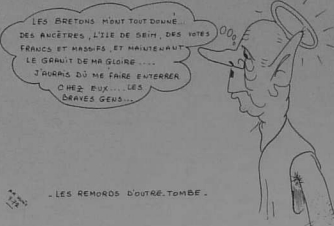 LES BRETONS M'ONT TOUT DONNÉ...
DES ANCÊTRES, L'ILE DE SEIN, DES VOTES
FRANCS ET MASSIFS, ET MAINTENANT
LE GRANIT DE MA GLOIRE.....
J'AURAIS DÛ ME FAIRE ENTERRER
CHEZ EUX.... LES
BRAVES GENS...
- LES REMORDS D'OUTRE-TOMBE -